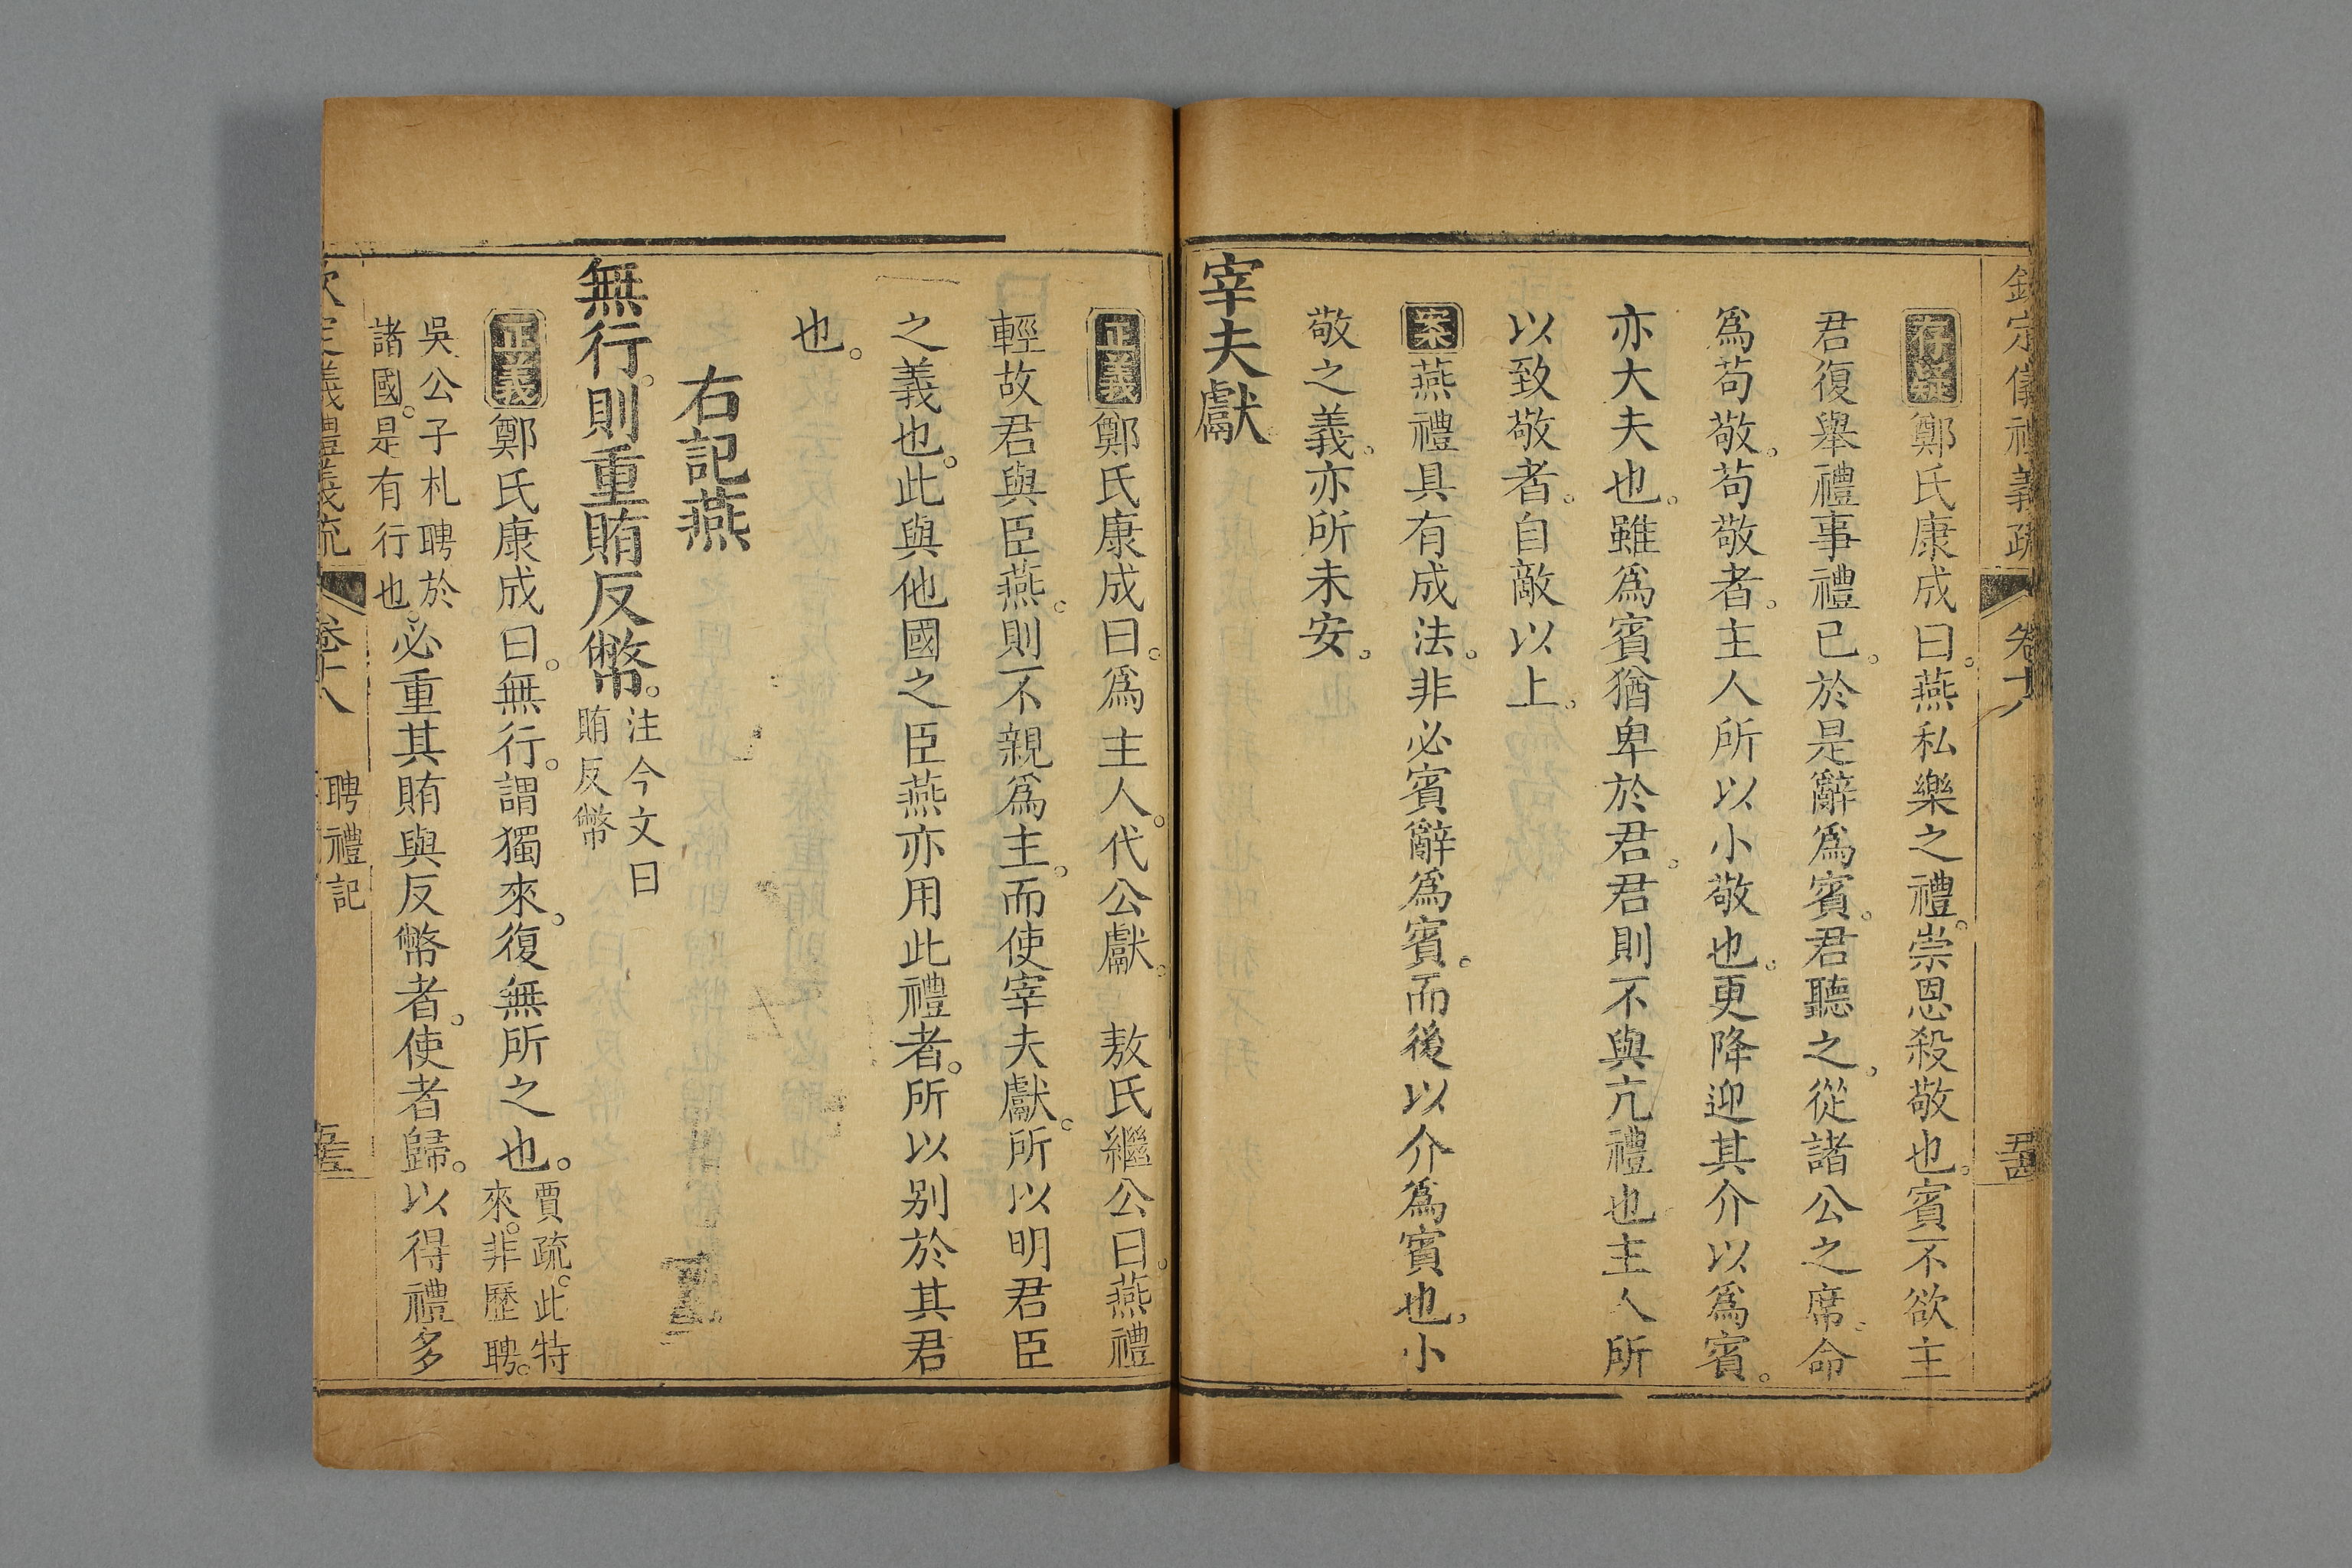 欽定儀禮義疏 卷十八
存疑鄭氏康成曰。燕私樂之禮。崇恩殺敬也。賓不欲主
君復舉禮事禮已。於是辭爲賓。君聽之。從諸公之席。命
爲苟敬。苟敬者。主人所以小敬也。更降迎其介以爲賓。
亦大夫也。雖爲賓猶卑於君。君則不與亢禮也主人所
以致敬者。自敵以上。
案燕禮具有成法。非必賓辭爲賓。而後以介爲賓也。小
敬之義。亦所未安。
宰夫獻
正義鄭氏康成曰。爲主人。代公獻。 敖氏繼公曰。燕禮
輕故君與臣燕。則不親爲主。而使宰夫獻。所以明君臣
之義也。此與他國之臣燕亦用此禮者。所以别於其君
也。
右記燕
無行。則重賄反幣。注今文曰
賄反幣
正義鄭氏康成曰。無行。謂獨來。復無所之也。賈疏。此特
來。非歷聘。
吳公子札聘於
諸國。是有行也。必重其賄與反幣者。使者歸。以得禮多
欽定義禮義疏 卷十八 聘禮記